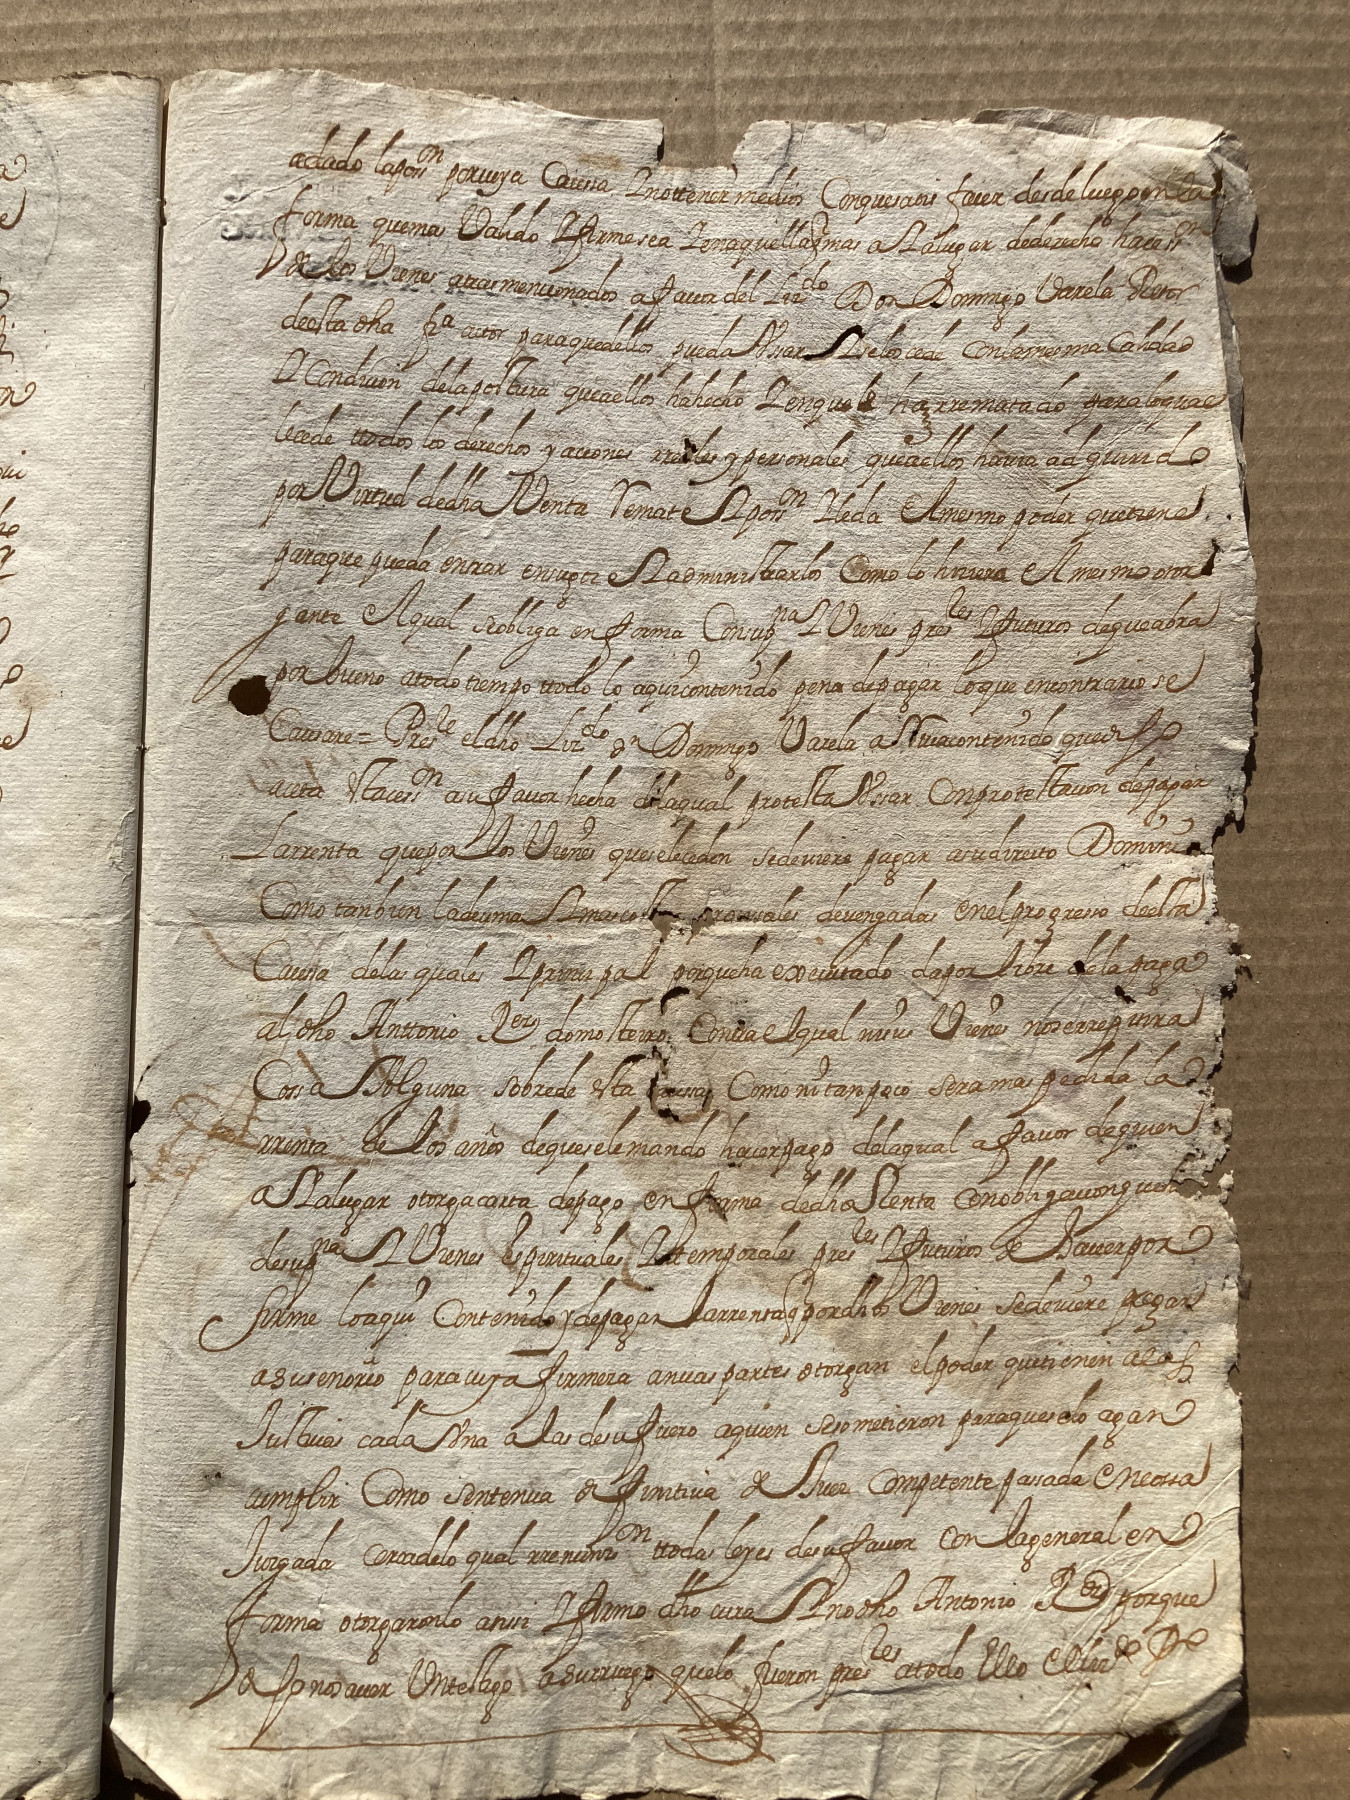 a dado la poss.on por cuya Caussa Y no ttener medios Con que satisfacer desde luego en la
forma que mas Valido Y firme sea Y en aquella q mas a Lugar de derecho hace ss.on
de los Vienes atras mencionados a favor del Liz.do Don Domingo Varela Retor
de esta dha fr.a actor para que dellos pueda Vssar Y se los cede Con la mesma Calidad
Y Condicion de la postura que a ellos ha hecho Y en que se ha rrematado para lo qual
le cede ttodos los derechos y aciones rreales y personales que a ellos havia adquirido
por Virtud de dha Venta Remate Y poss.on Y le da El mesmo poder que tiene
para que pueda entrar en su goze Y administrarlos Como lo hiziera El mesmo otor
gante El qual se obliga en forma Con su p.na Y Vienes pres.tes Y futuros de que abra
por bueno a todo tiempo ttodo lo aqui contenido pena de pagar lo que en contrario se
Causare = Pres.te el dho Liz.do d.n Domingo Varela
aceta esta cess.on a su favor hecha de la qual protesta Vssar Con protestacion de pagar
La rrenta que por los Vienes que se le ceden se deviere pagar a su direito Dominio
Como tanbien la decima Y mas costas prosesales devengadas en el progresso de esta
Caussa de las quales Y prinzipal porque ha executado da por libre de la paga
al dho Anttonio R.es do mosteiro Contra el qual ni sus Vienes no se rrepitira
Cossa Alguna sobre de esta Caussa Como ni tanpoco sera mas pedida la
rrenta de los años de que se le mando hacer pago de la qual a favor de quien
a Lugar otorga carta de pago en forma de dha Renta Con obligacion que
de su p.na Y Vienes espirituales Y temporales pres.tes Y futuros de haver por
firme lo aqui Contenido y de pagar la rrenta q por dhos Vienes se deviere pagar
a su señorio para cuya firmeza anvas partes otorgan el poder que tienen a las
Justicias cada Vna a las de su fuero a quien se sometieron para que se lo agan
cumplir Como sentencia difinitiva de Juez Competente passada en cossa
Juzgada cerca de lo qual rrenunz.on ttodas leyes de su favor con la general en
forma otorgaronlo ansi Y firmo dho cura Y no dho Antonio R.es porque
dijo no saver Vn testigo a su rruego que lo fueron pres.tes a todo Ello el liz.do D.o